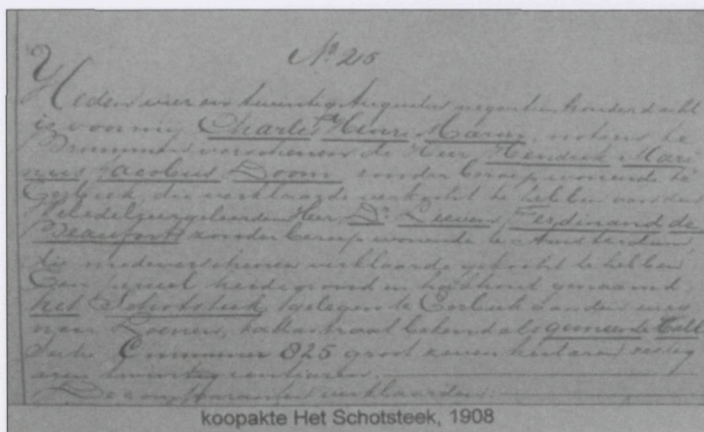 No 25
Heden vier en twintig Augustus negentien honderd acht
is voor mij, Charles Henri Maron, notaris te
Brummen verschenen de Heer Hendrik Mari
nus Jacobus Doorn zonder beroep wonende te
Eerbeek, die verklaarde verkocht te hebben aan den
Heer Dr. Lieven Ferdinand de
Beaufort zonder beroep wonende te Amsterdam,
die medeverschenen verklaarde gekocht te hebben
Een perceel heidegrond en hakhout genaamd
het Schotsteek, gelegen te Eerbeek aan den weg
naar Loenen, kadastraal bekend als gemeente Hall
Sectie C nummer 825 groot zeven hectaren
en twintig centiaren.
De comparanten verklaarden:
koopakte Het Schotsteek, 1908